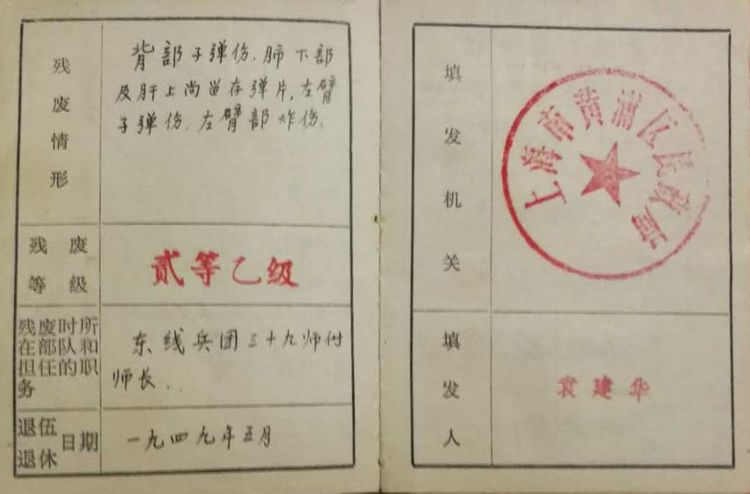 残废情形
背部子弹伤.肺下部
及肝上尚留存弹片,左臂
子弹伤.左臂部炸伤.
残废
等级
贰等乙级
残废时所
在部队和
担任的职
务
东线兵团三十九师付
师长.
退伍
退休
日期
一九四九年五月
填发机关
上海市黄浦区民政局
填发人
袁建华